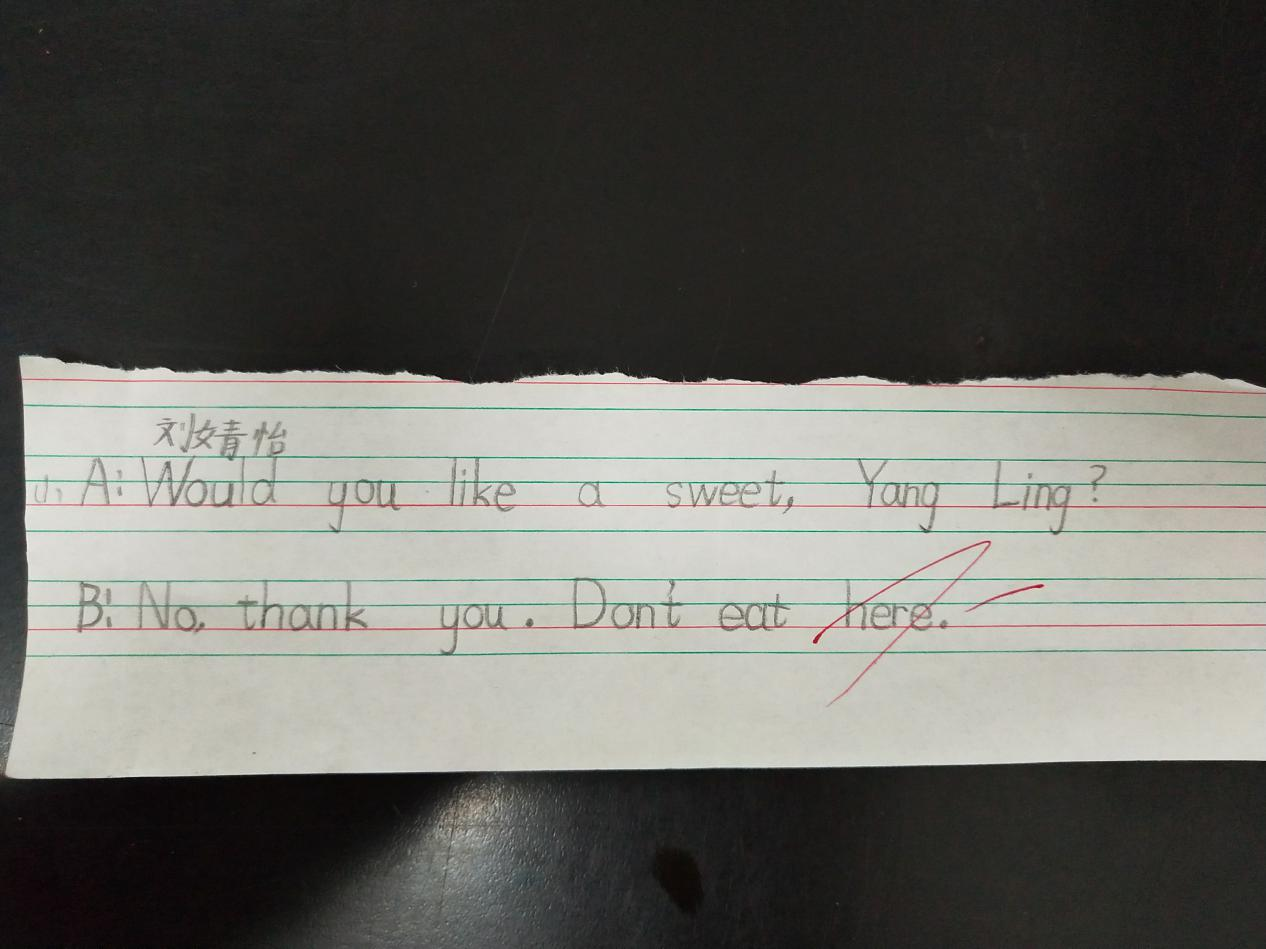 刘女青怡
A: Would you like a sweet, Yang Ling?
B: No, thank you. Don't eat here.